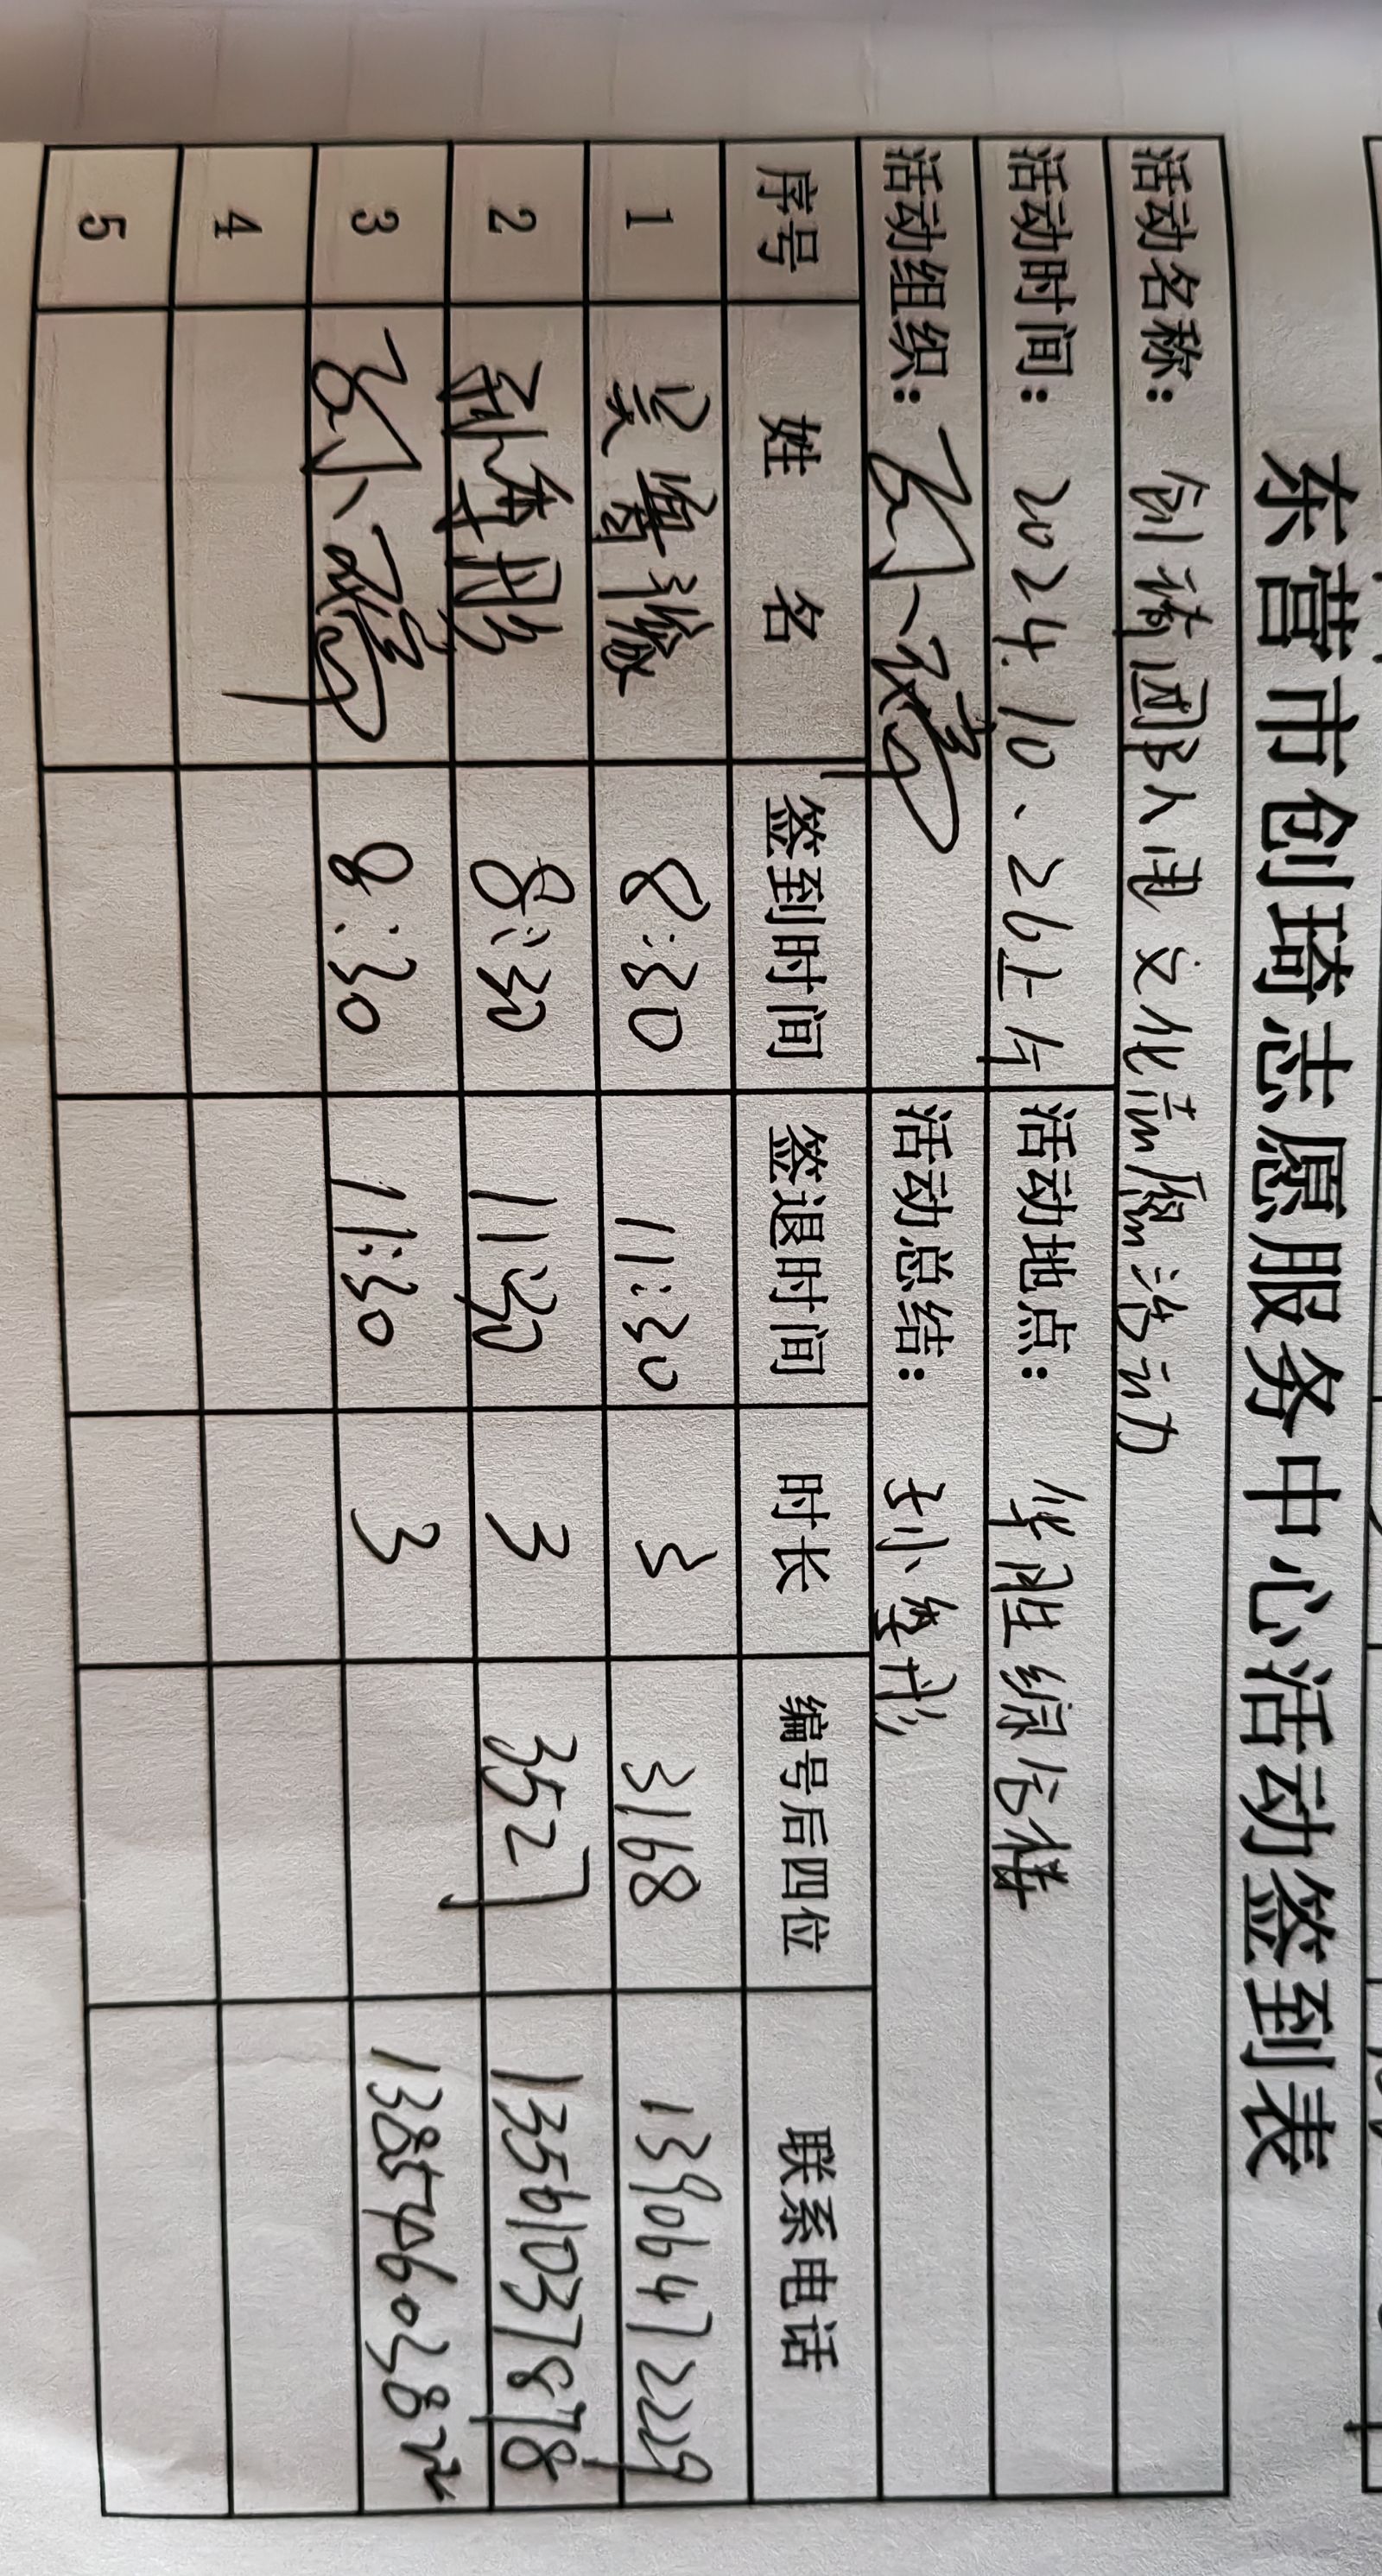 东营市创琦志愿服务中心活动签到表
活动名称: 创琦团队人甩文化志愿活动
活动时间: 2024.10、26上午 活动地点: 华胜绿仓楼
活动组织: 活动总结: 孙小
序号 姓 名 签到时间 签退时间 时长 编号后四位 联系电话
1 吴 8:30 11:30 3 3168 13906472229
2 孙 8:30 11:30 3 3527 13561037878
3 8:30 11:30 3
4
5